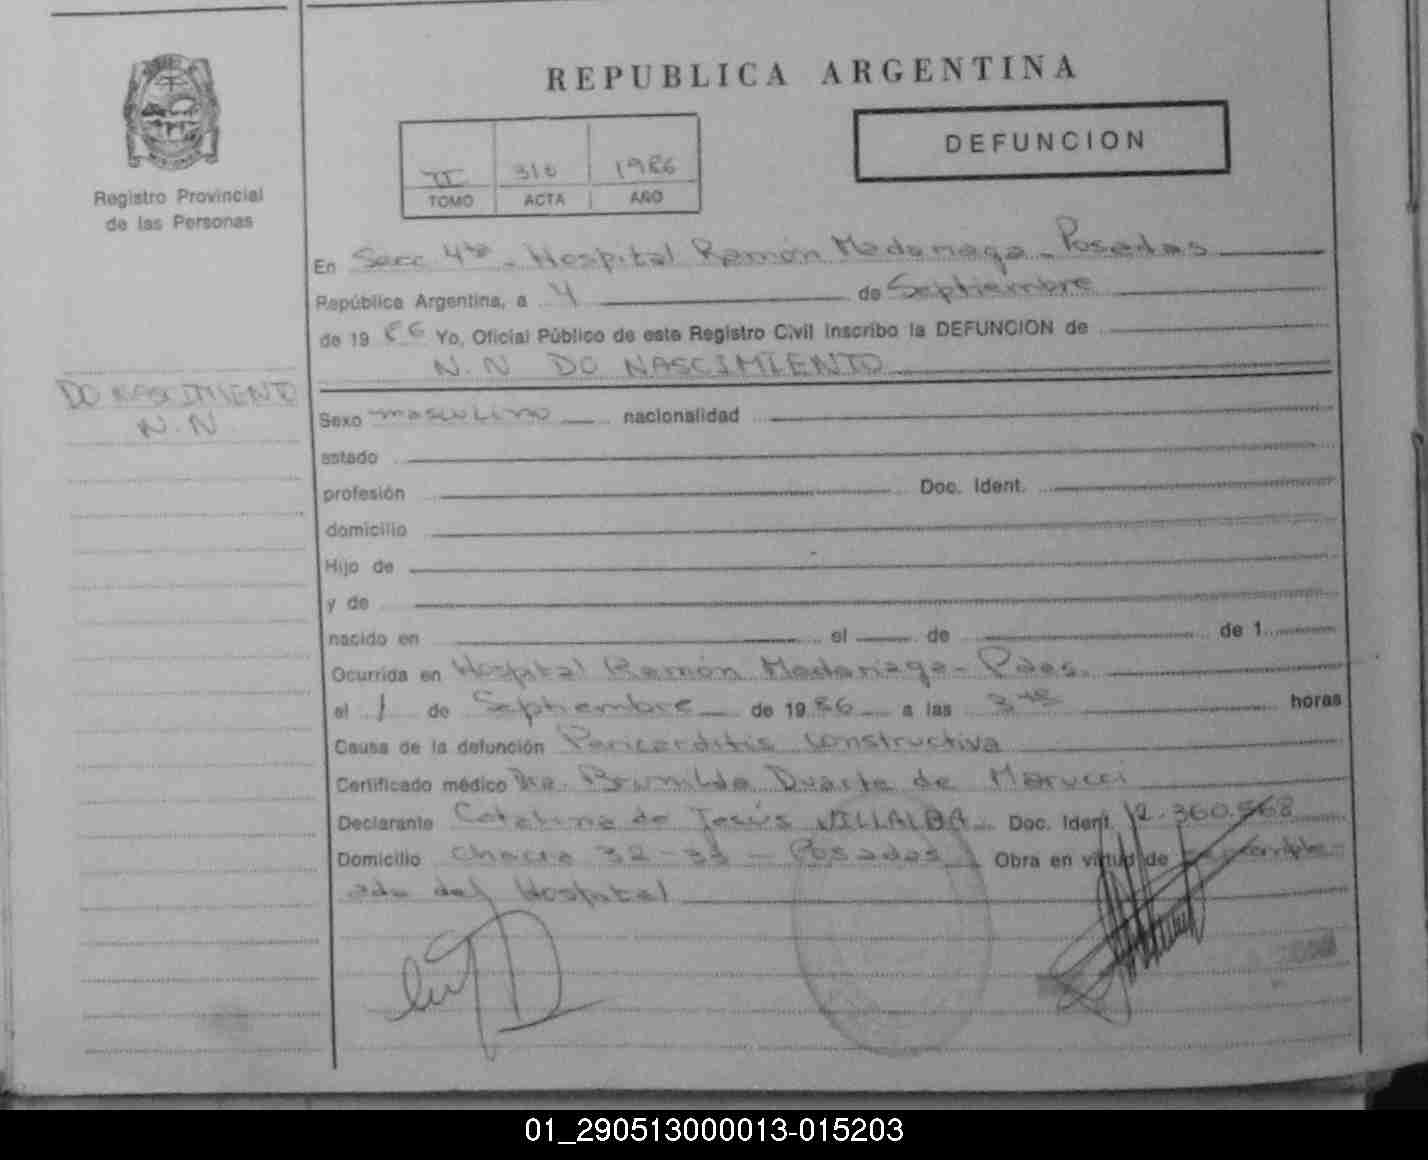 REPUBLICA ARGENTINA
DEFUNCION
II 310 1986
TOMO ACTA AÑO
Registro Provincial
de las Personas
En Secc 4ta - Hospital Ramón Madariaga - Posadas
República Argentina, a 4 de Septiembre
de 19 86 Yo, Oficial Público de este Registro Civil inscribo la DEFUNCION de
N.N DO NASCIMIENTO
DO NASCIMIENTO
N.N
Sexo masculino nacionalidad
estado
profesión Doc. Ident.
domicilio
Hijo de
y de
nacido en el de de 1
Ocurrida en Hospital Ramón Madariaga - Pdas.
el 1 de Septiembre de 19 86 a las horas
Causa de la defunción Pericarditis constructiva
Certificado médico Dra. Brunilda Duarte de Marucci
Declarante Catalina de Jesús VILLALBA Doc. Ident. 12.360.568
Domicilio Chacra 32-33 - Posadas Obra en virtud de ser emple-
ada del Hospital
01_290513000013-015203